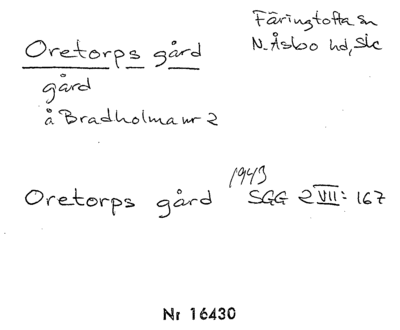 Färingtofta sn
N. Åsbo hd, Sk
Oretorps gård
gård
å Bradholma nr 2
1943
Oretorps gård SGG 2 VII: 167
Nr 16430